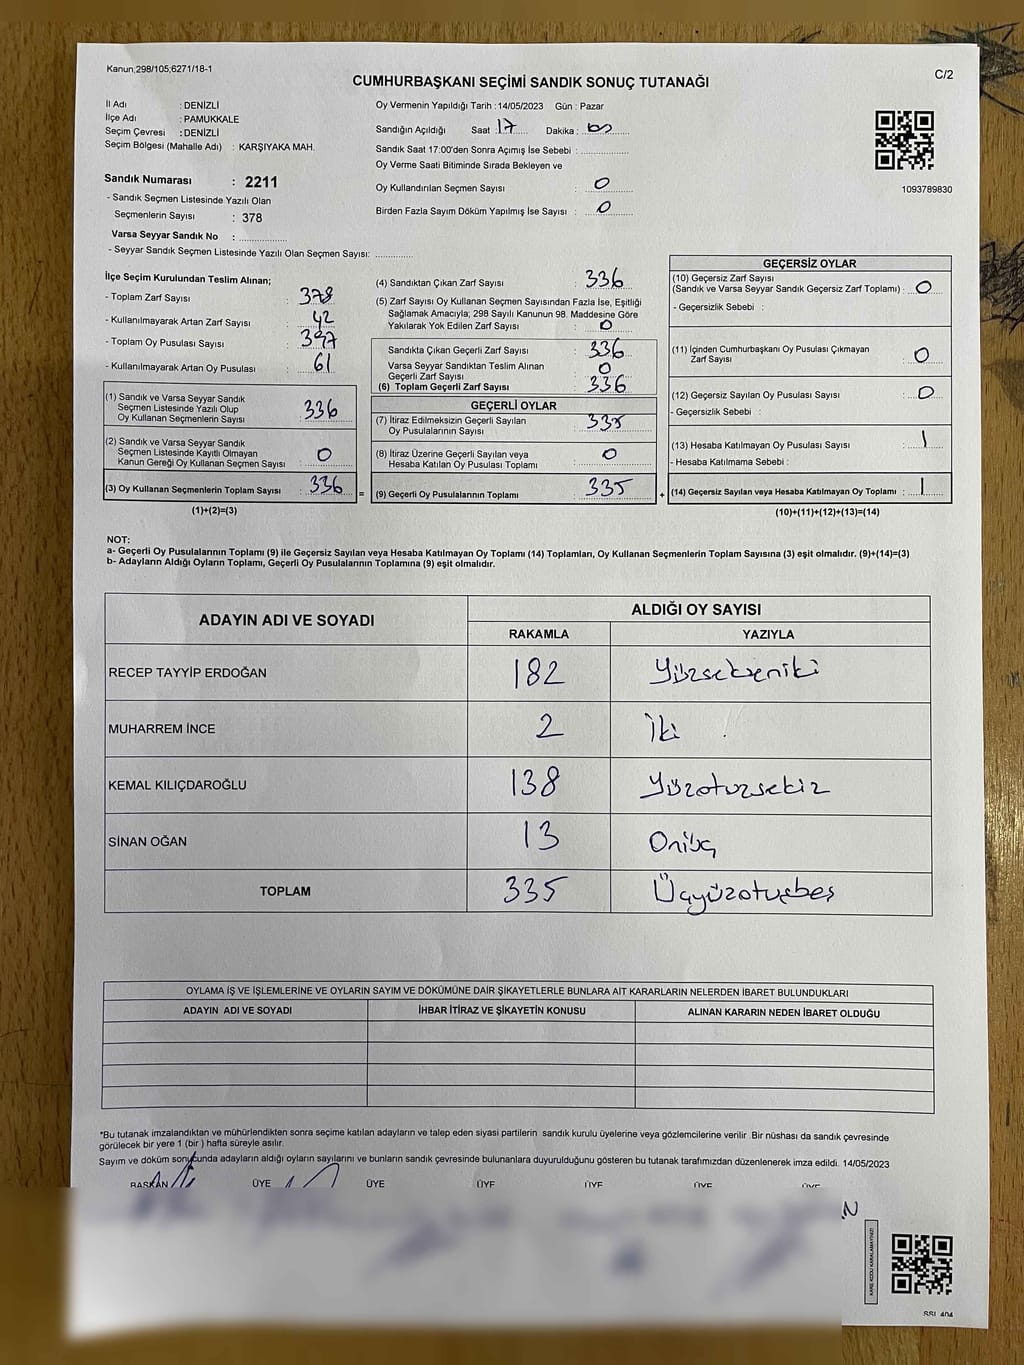 Kanun;298/105;6271/18-1
C/2
CUMHURBAŞKANI SEÇİMİ SANDIK SONUÇ TUTANAĞI
İl Adı : DENİZLİ
İlçe Adı : PAMUKKALE
Seçim Çevresi : DENİZLİ
Seçim Bölgesi (Mahalle Adı) : KARŞIYAKA MAH.
Sandık Numarası : 2211
- Sandık Seçmen Listesinde Yazılı Olan
Seçmenlerin Sayısı : 378
Varsa Seyyar Sandık No :
- Seyyar Sandık Seçmen Listesinde Yazılı Olan Seçmen Sayısı:
Oy Vermenin Yapıldığı Tarih :14/05/2023 Gün : Pazar
Sandığın Açıldığı Saat : 17 Dakika :
Sandık Saat 17:00'den Sonra Açımış İse Sebebi :
Oy Verme Saati Bitiminde Sırada Bekleyen ve
Oy Kullandırılan Seçmen Sayısı : 0
Birden Fazla Sayım Döküm Yapılmış İse Sayısı : 0
1093789830
İlçe Seçim Kurulundan Teslim Alınan;
- Toplam Zarf Sayısı : 378
- Kullanılmayarak Artan Zarf Sayısı : 42
- Toplam Oy Pusulası Sayısı : 397
- Kullanılmayarak Artan Oy Pusulası : 61
(1) Sandık ve Varsa Seyyar Sandık
Seçmen Listesinde Yazılı Olup
Oy Kullanan Seçmenlerin Sayısı : 336
(2) Sandık ve Varsa Seyyar Sandık
Seçmen Listesinde Kayıtlı Olmayan
Kanun Gereği Oy Kullanan Seçmen Sayısı : 0
(3) Oy Kullanan Seçmenlerin Toplam Sayısı : 336
(1)+(2)=(3)
=
(4) Sandıktan Çıkan Zarf Sayısı : 336
(5) Zarf Sayısı Oy Kullanan Seçmen Sayısından Fazla İse, Eşitliği
Sağlamak Amacıyla; 298 Sayılı Kanunun 98. Maddesine Göre
Yakılarak Yok Edilen Zarf Sayısı : 0
Sandıkta Çıkan Geçerli Zarf Sayısı : 336
Varsa Seyyar Sandıktan Teslim Alınan
Geçerli Zarf Sayısı : 0
(6) Toplam Geçerli Zarf Sayısı : 336
GEÇERLİ OYLAR
(7) İtiraz Edilmeksizin Geçerli Sayılan
Oy Pusulalarının Sayısı : 335
(8) İtiraz Üzerine Geçerli Sayılan veya
Hesaba Katılan Oy Pusulası Toplamı : 0
(9) Geçerli Oy Pusulalarının Toplamı : 335
+
GEÇERSİZ OYLAR
(10) Geçersiz Zarf Sayısı
(Sandık ve Varsa Seyyar Sandık Geçersiz Zarf Toplamı) : 0
- Geçersizlik Sebebi :
(11) İçinden Cumhurbaşkanı Oy Pusulası Çıkmayan
Zarf Sayısı : 0
(12) Geçersiz Sayılan Oy Pusulası Sayısı : 0
- Geçersizlik Sebebi :
(13) Hesaba Katılmayan Oy Pusulası Sayısı : 1
- Hesaba Katılmama Sebebi :
(14) Geçersiz Sayılan veya Hesaba Katılmayan Oy Toplamı : 1
(10)+(11)+(12)+(13)=(14)
NOT:
a- Geçerli Oy Pusulalarının Toplamı (9) ile Geçersiz Sayılan veya Hesaba Katılmayan Oy Toplamı (14) Toplamları, Oy Kullanan Seçmenlerin Toplam Sayısına (3) eşit olmalıdır. (9)+(14)=(3)
b- Adayların Aldığı Oyların Toplamı, Geçerli Oy Pusulalarının Toplamına (9) eşit olmalıdır.
ADAYIN ADI VE SOYADI
ALDIĞI OY SAYISI
RAKAMLA YAZIYLA
RECEP TAYYİP ERDOĞAN 182 Yüzsekseniki
MUHARREM İNCE 2 İki
KEMAL KILIÇDAROĞLU 138 Yüzotuzsekiz
SİNAN OĞAN 13 Onüç
TOPLAM 335 Üçyüzotuzbeş
OYLAMA İŞ VE İŞLEMLERİNE VE OYLARIN SAYIM VE DÖKÜMÜNE DAİR ŞİKAYETLERLE BUNLARA AİT KARARLARIN NELERDEN İBARET BULUNDUKLARI
ADAYIN ADI VE SOYADI İHBAR İTİRAZ VE ŞİKAYETİN KONUSU ALINAN KARARIN NEDEN İBARET OLDUĞU
*Bu tutanak imzalandıktan ve mühürlendikten sonra seçime katılan adayların ve talep eden siyasi partilerin sandık kurulu üyelerine veya gözlemcilerine verilir .Bir nüshası da sandık çevresinde
görülecek bir yere 1 (bir ) hafta süreyle asılır.
Sayım ve döküm sonucunda adayların aldığı oyların sayılarını ve bunların sandık çevresinde bulunanlara duyurulduğunu gösteren bu tutanak tarafımızdan düzenlenerek imza edildi. 14/05/2023
BAŞKAN ÜYE ÜYE ÜYE ÜYE ÜYE ÜYE